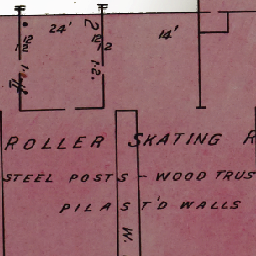 24'
14'
2
12
12
12
12
1-2.
ROLLER SKATING R
STEEL POSTS - WOOD TRUS
PILAST'D WALLS
W.